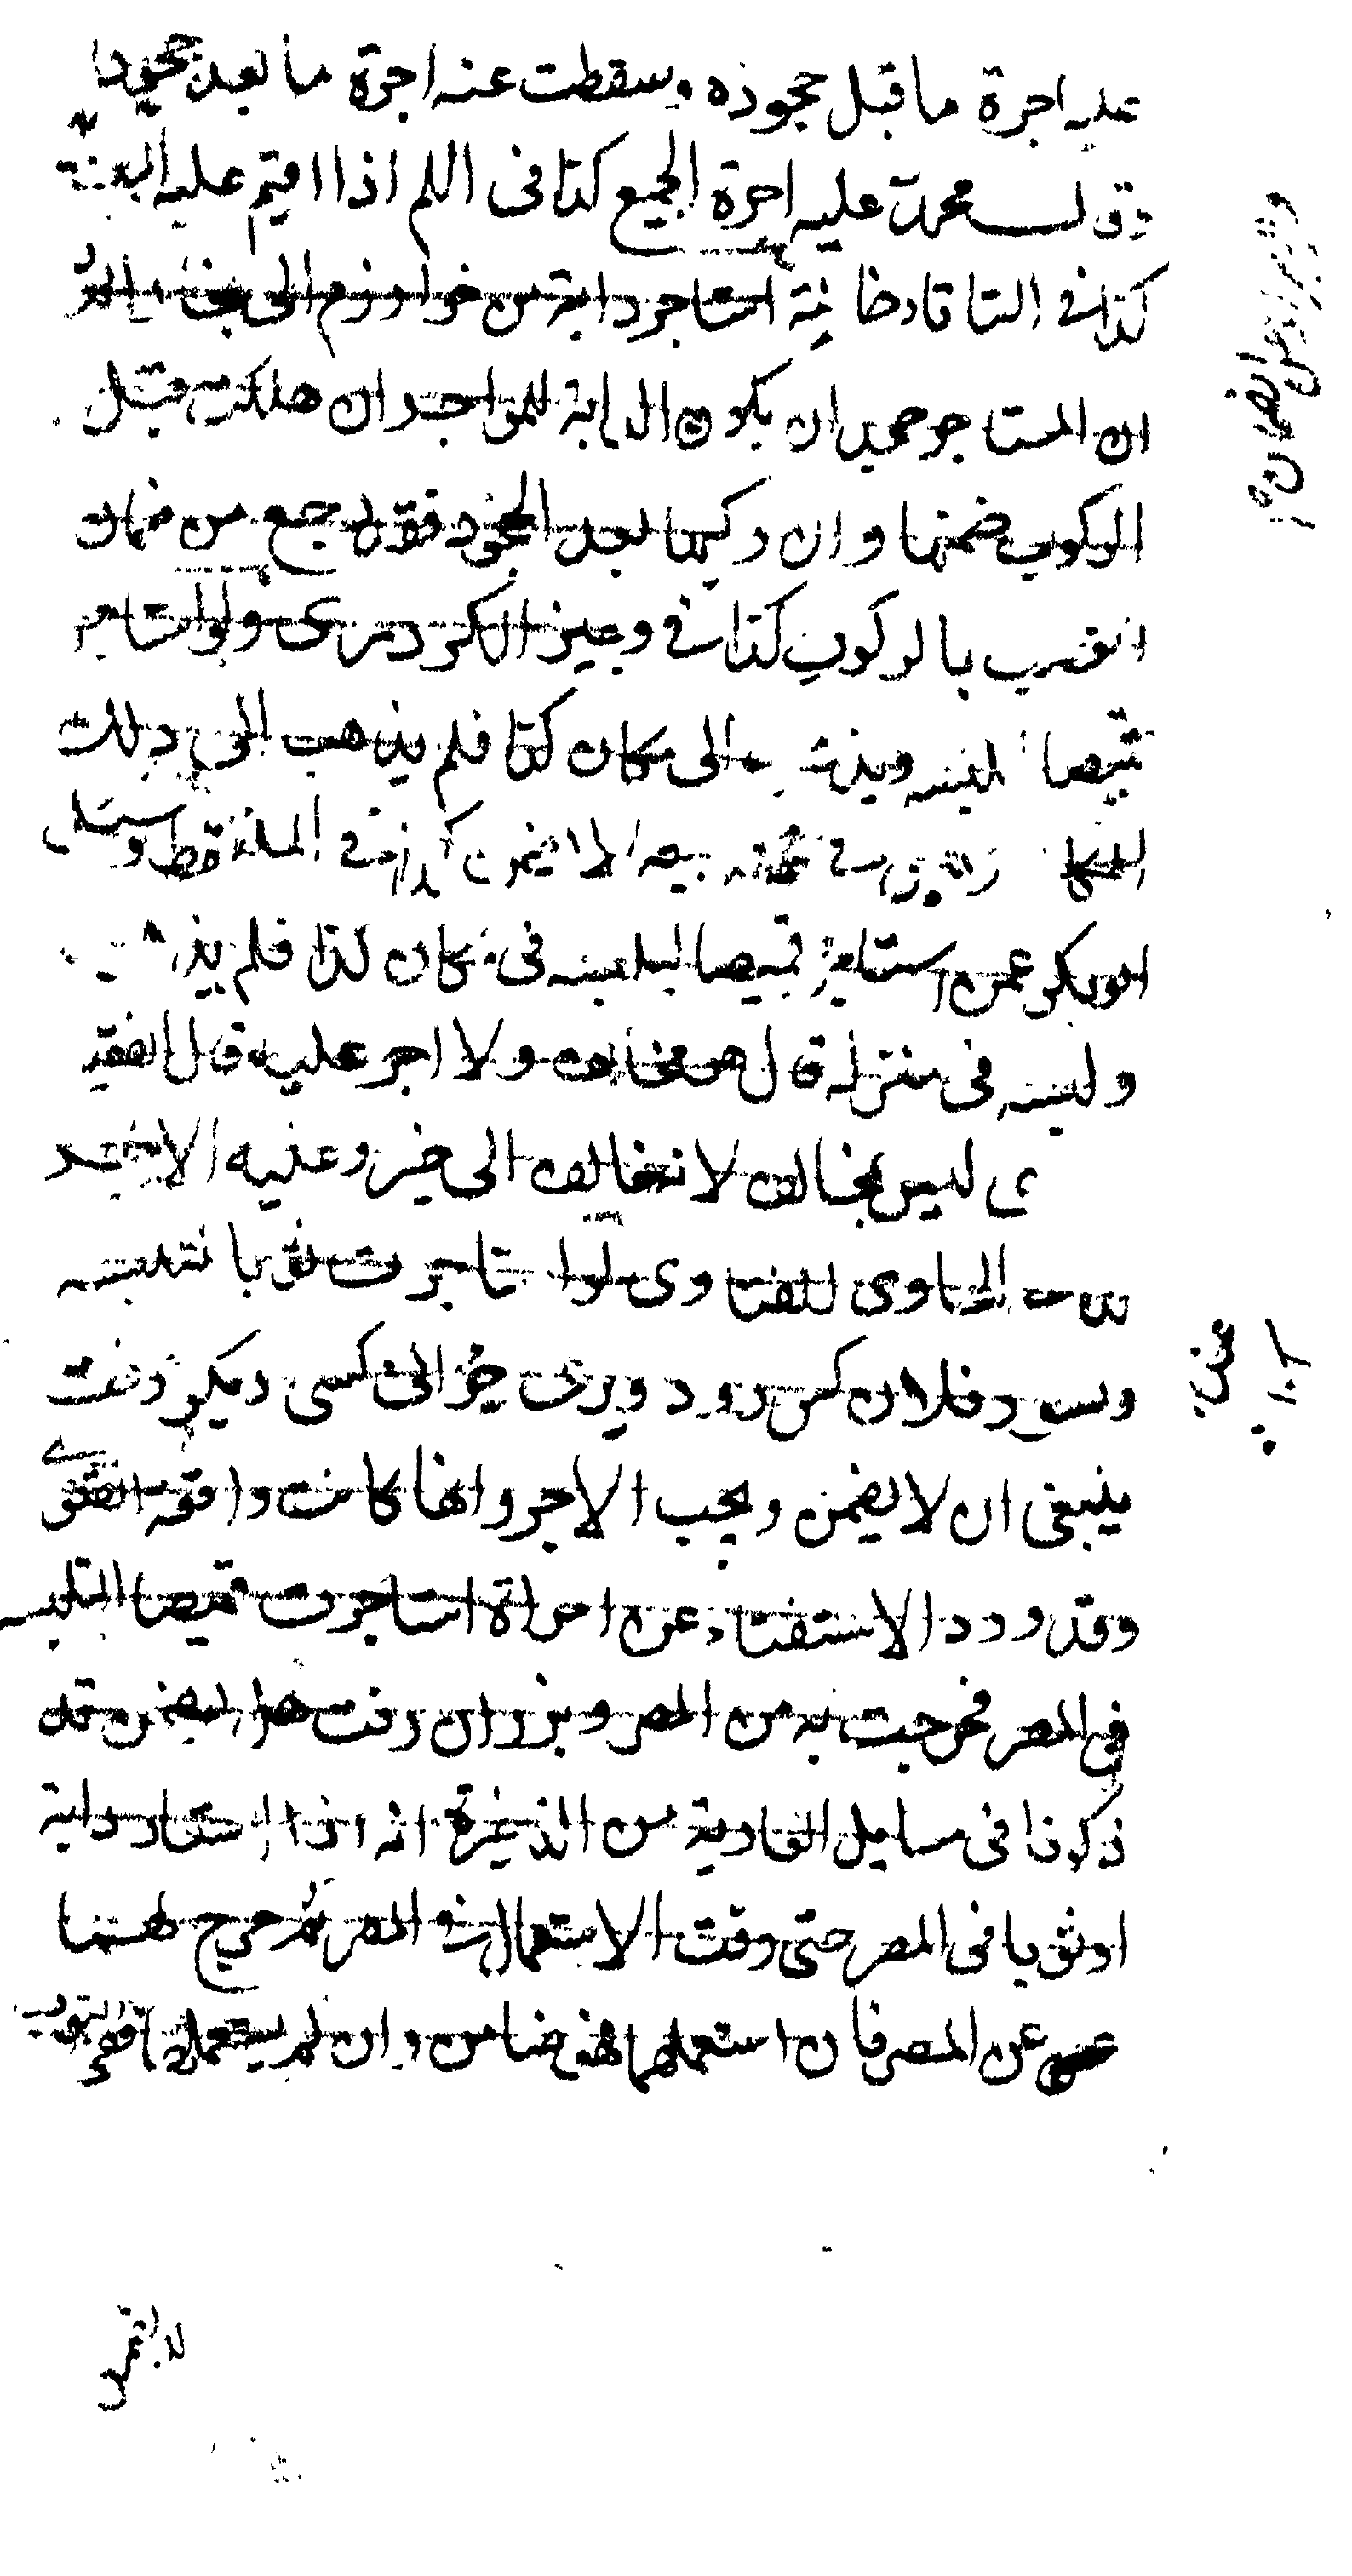 عليه اجرة ما قبل جحوده وسقطت عنه اجرة ما بعد جحوده
وقال محمد عليه اجرة الجميع كذا في اذا اقيم عليه البينة
كذا في التاتارخانية استاجر دابة من خوارزم الى بخارا
ان المستاجر جحد ان يكون الدابة للمواجر ان هلكت قبل
الركوب ضمنها وان ركبها بعد الجحود فقد رجع من ضمان
الغصب بالركوب كذا في وجيز الكردرى ولو استاجر
قميصا ليلبسه ويذهب الى مكان كذا فلم يذهب الى ذلك
المكان لا ضمن كذا في الملتقط وسئل
ابو بكر عمن استاجر قميصا ليلبسه في مكان كذا فلم يذهب
ولبسه في منزله قال هو مخالف ولا اجر عليه قال الفقيه
ى ليس بمخالف لانه خالف الى خير وعليه الاجر
الحاوى للفتاوى لو استاجرت ثوبا لتلبسه
فلان كس رود ويرى جز الى كسى ديكر رفت
ينبغى ان لا يضمن ويجب الاجر وانها كانت واقعة الفتوى
وقد ورد الاستفتاء عن امراة استاجرت قميصا لتلبسه
في المصر فخرجت به من المصر وبزران رفت هل يضمن قد
ذكرنا في مسايل العارية من الذخيرة انه اذا استعار دابة
او ثوبا في المصر حتى وقت الاستعمال في المصر ثم خرج بهما
عن المصر فان استعملهما فهو ضامن وان لم يستعملهما ففى الثوب